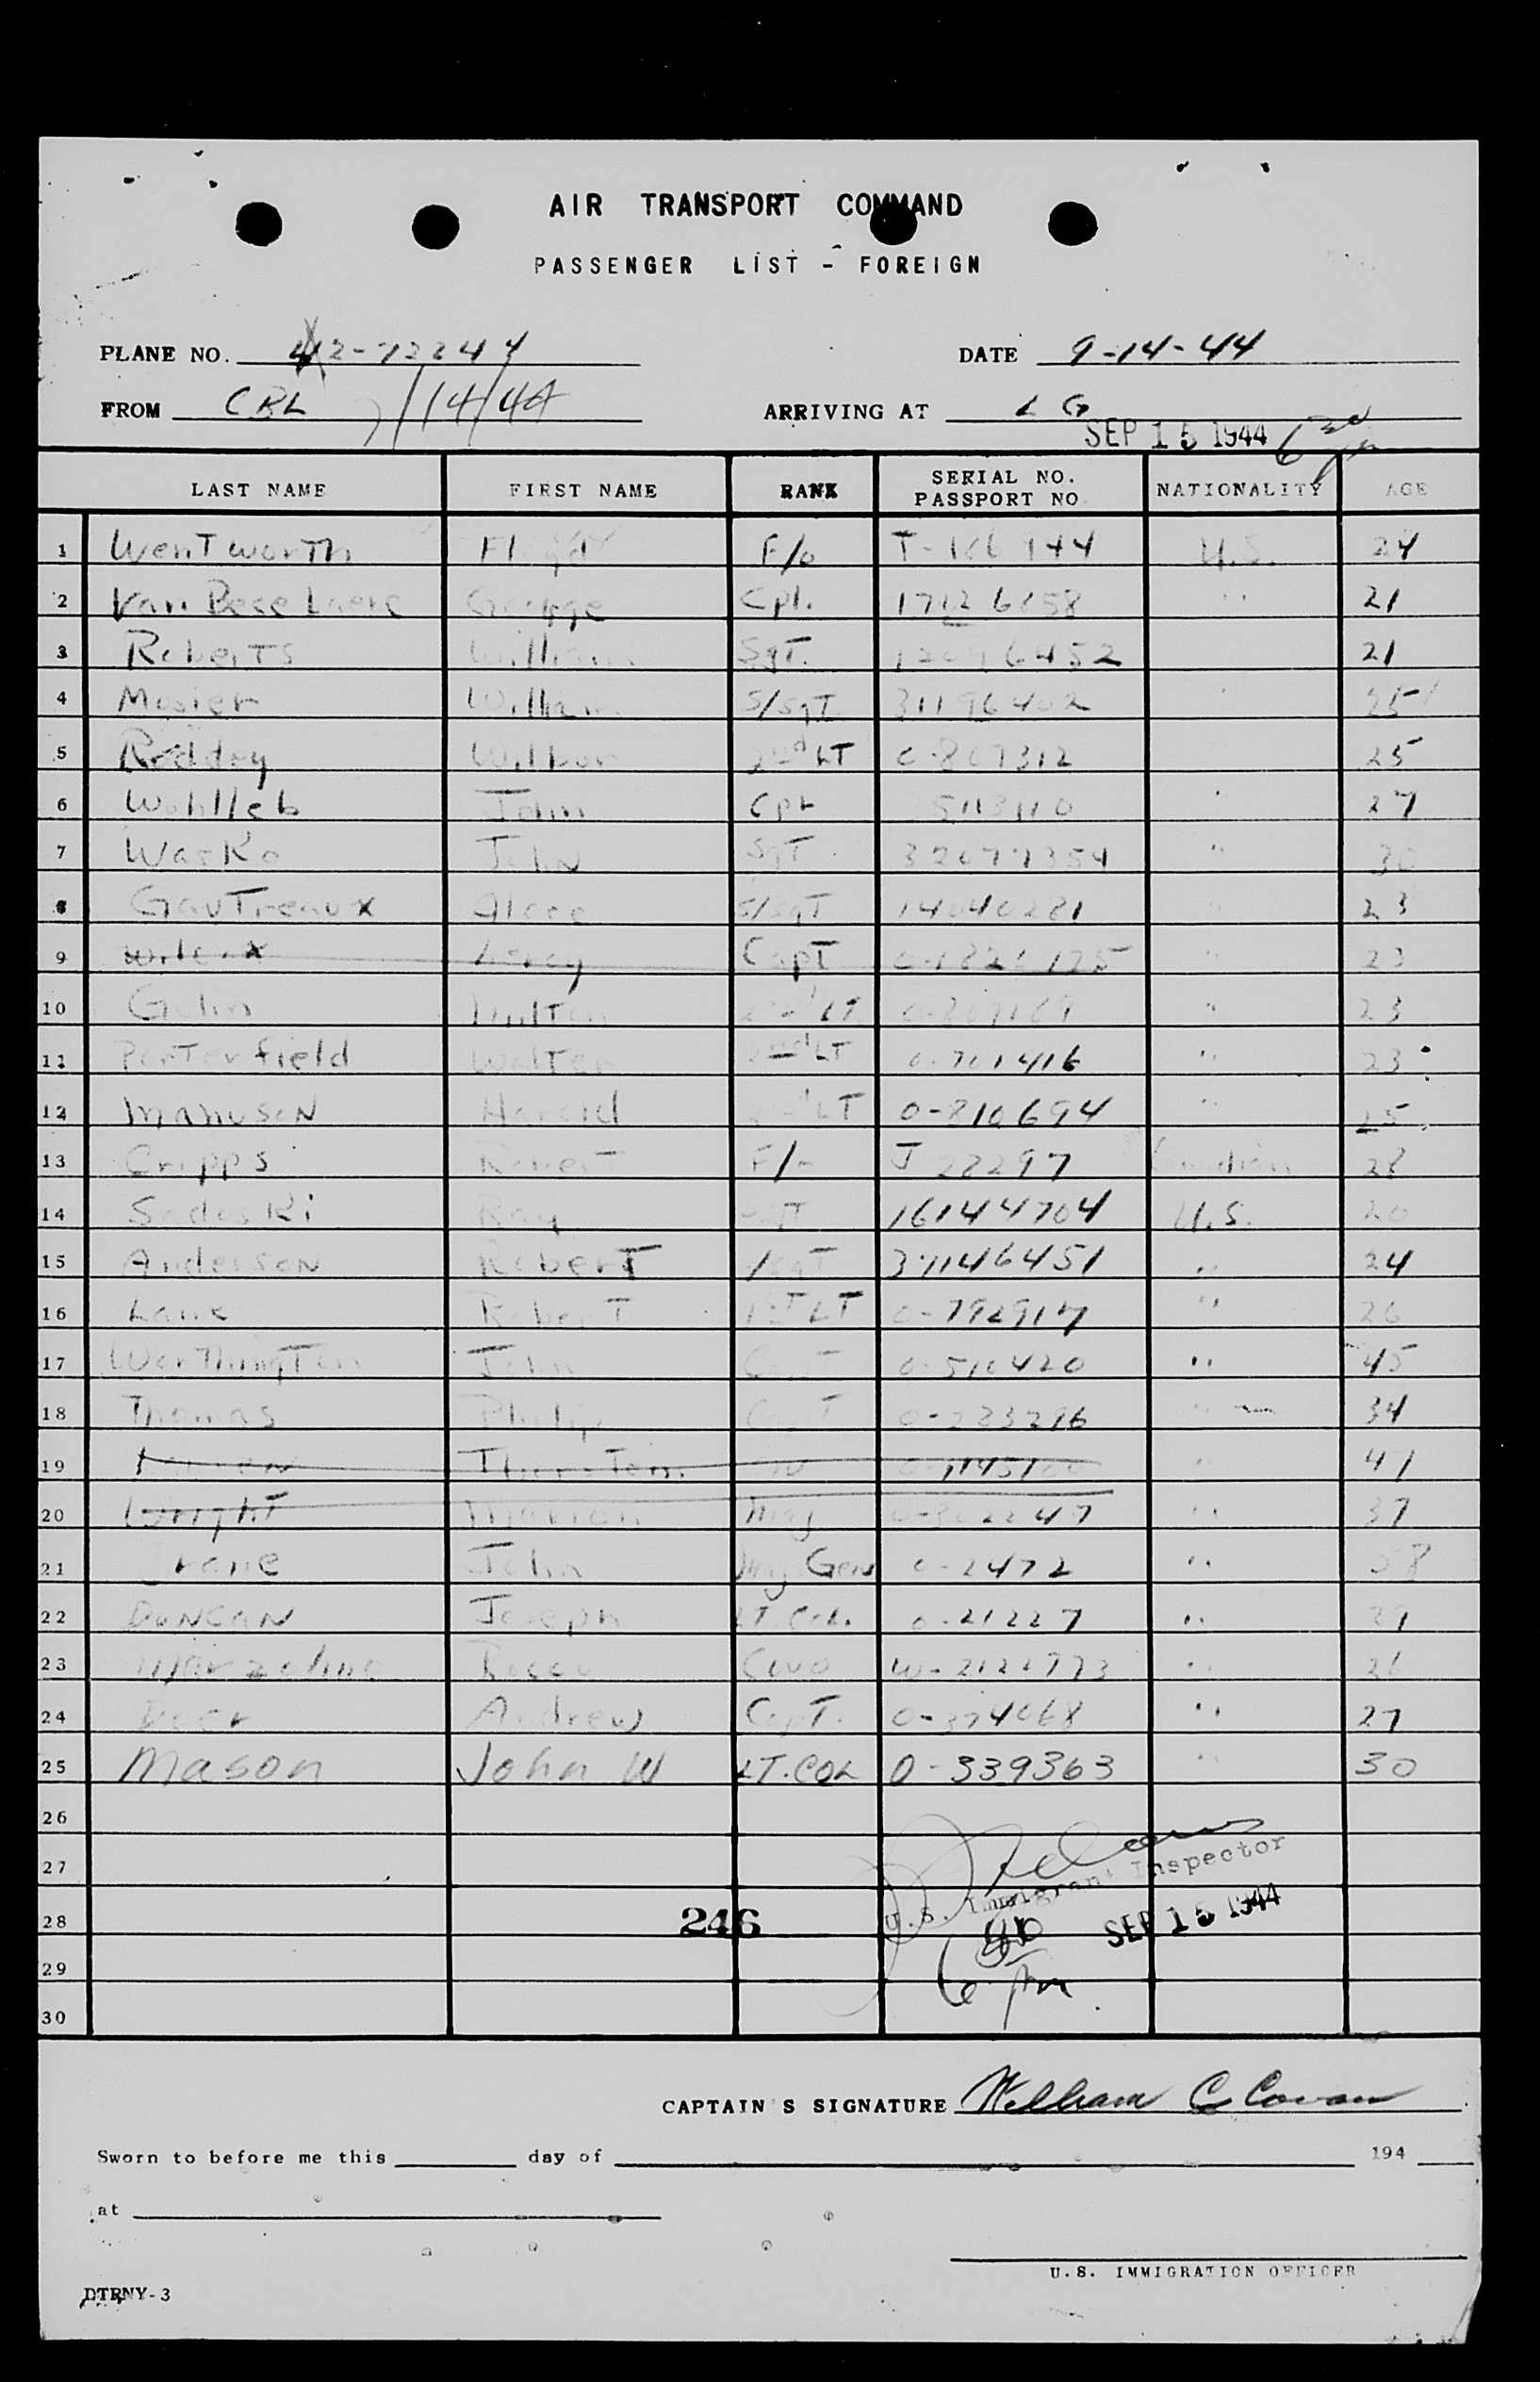 AIR TRANSPORT COMMAND
PASSENGER LIST - FOREIGN
PLANE NO. 42-72244 DATE 9-14-44
FROM CBL /14/44 ARRIVING AT LG
SEP 15 1944 6
LAST NAME FIRST NAME RANK SERIAL NO. PASSPORT NO NATIONALITY AGE
1 Wentworth Floyd F/o U.S. 24
2 George Cpl. " 21
3 Roberts William Sgt. 21
4 Mosier William S/Sgt 31196402 25
5 Roddey Wilbur 2nd LT 0-807312 25
6 Wohlleb John Cpt " 27
7 Wasko John Sgt 32077354 " 30
8 Gautreaux Alcee S/Sgt 14040281 23
9 Wilcox Leroy Capt " 23
10 Milton 2nd LT 0-809169 " 23
11 Porterfield Walter 2nd LT 0-701416 " 23
12 Manuson Harold 2nd LT 0-810694 " 25
13 Cripps Robert F/o J 28297 Canadian 28
14 Sadoski Ray 16144704 U.S. 20
15 Anderson Robert 37146451 " 24
16 Lane Robert 1st LT 0-792917 " 26
17 Worthington John Capt 0-510420 " 45
18 Thomas Philip Capt 0-283296 " 34
19 " 41
20 Wright Marion Maj " 37
21 Crane John Maj Gen 0-2472 " 58
22 Duncan Joseph LT. Col. 0-21227 " 29
23 Rocco CWO " 26
24 Andrew Capt. 0-374068 " 27
25 Mason John W LT. COL 0-339363 " 30
26
27
U.S. Immigrant Inspector
28 246 SEP 15 1944
29 6 pm
30
CAPTAIN'S SIGNATURE William C Cowan
Sworn to before me this day of 194
at
U.S. IMMIGRATION OFFICER
DTRNY-3